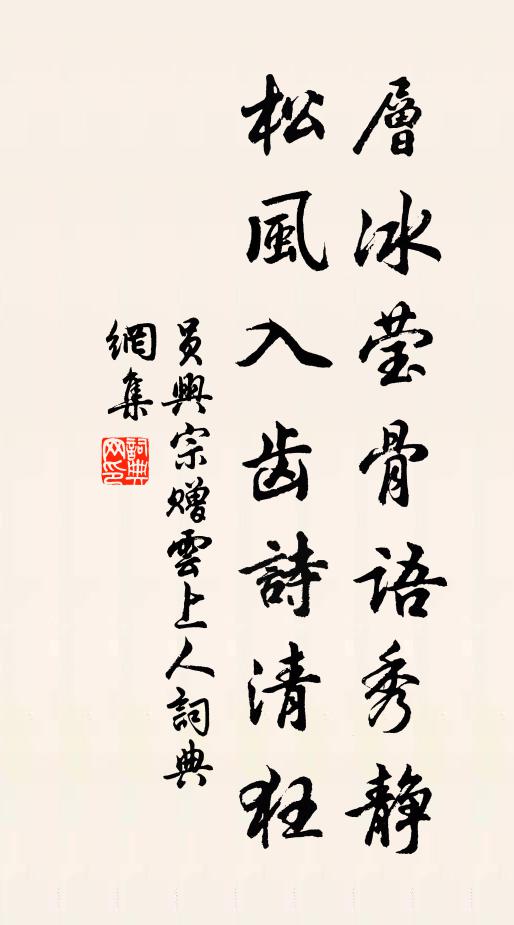 層冰莹骨語秀静
松風入齿詩清狂
員興宗贈雲上人詞典
網集
詞典网印